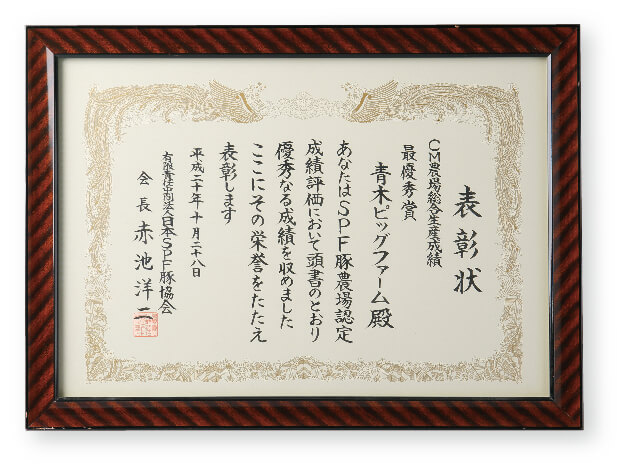 表彰状
CM農場総合生産成績
最優秀賞
青木ピッグファーム殿
あなたはSPF豚農場認定
成績評価において頭書のとおり
優秀なる成績を収めました
ここにその栄誉をたたえ
表彰します
平成二十年十月二十八日
有限責任中間法人日本SPF豚協会
会長 赤池洋二